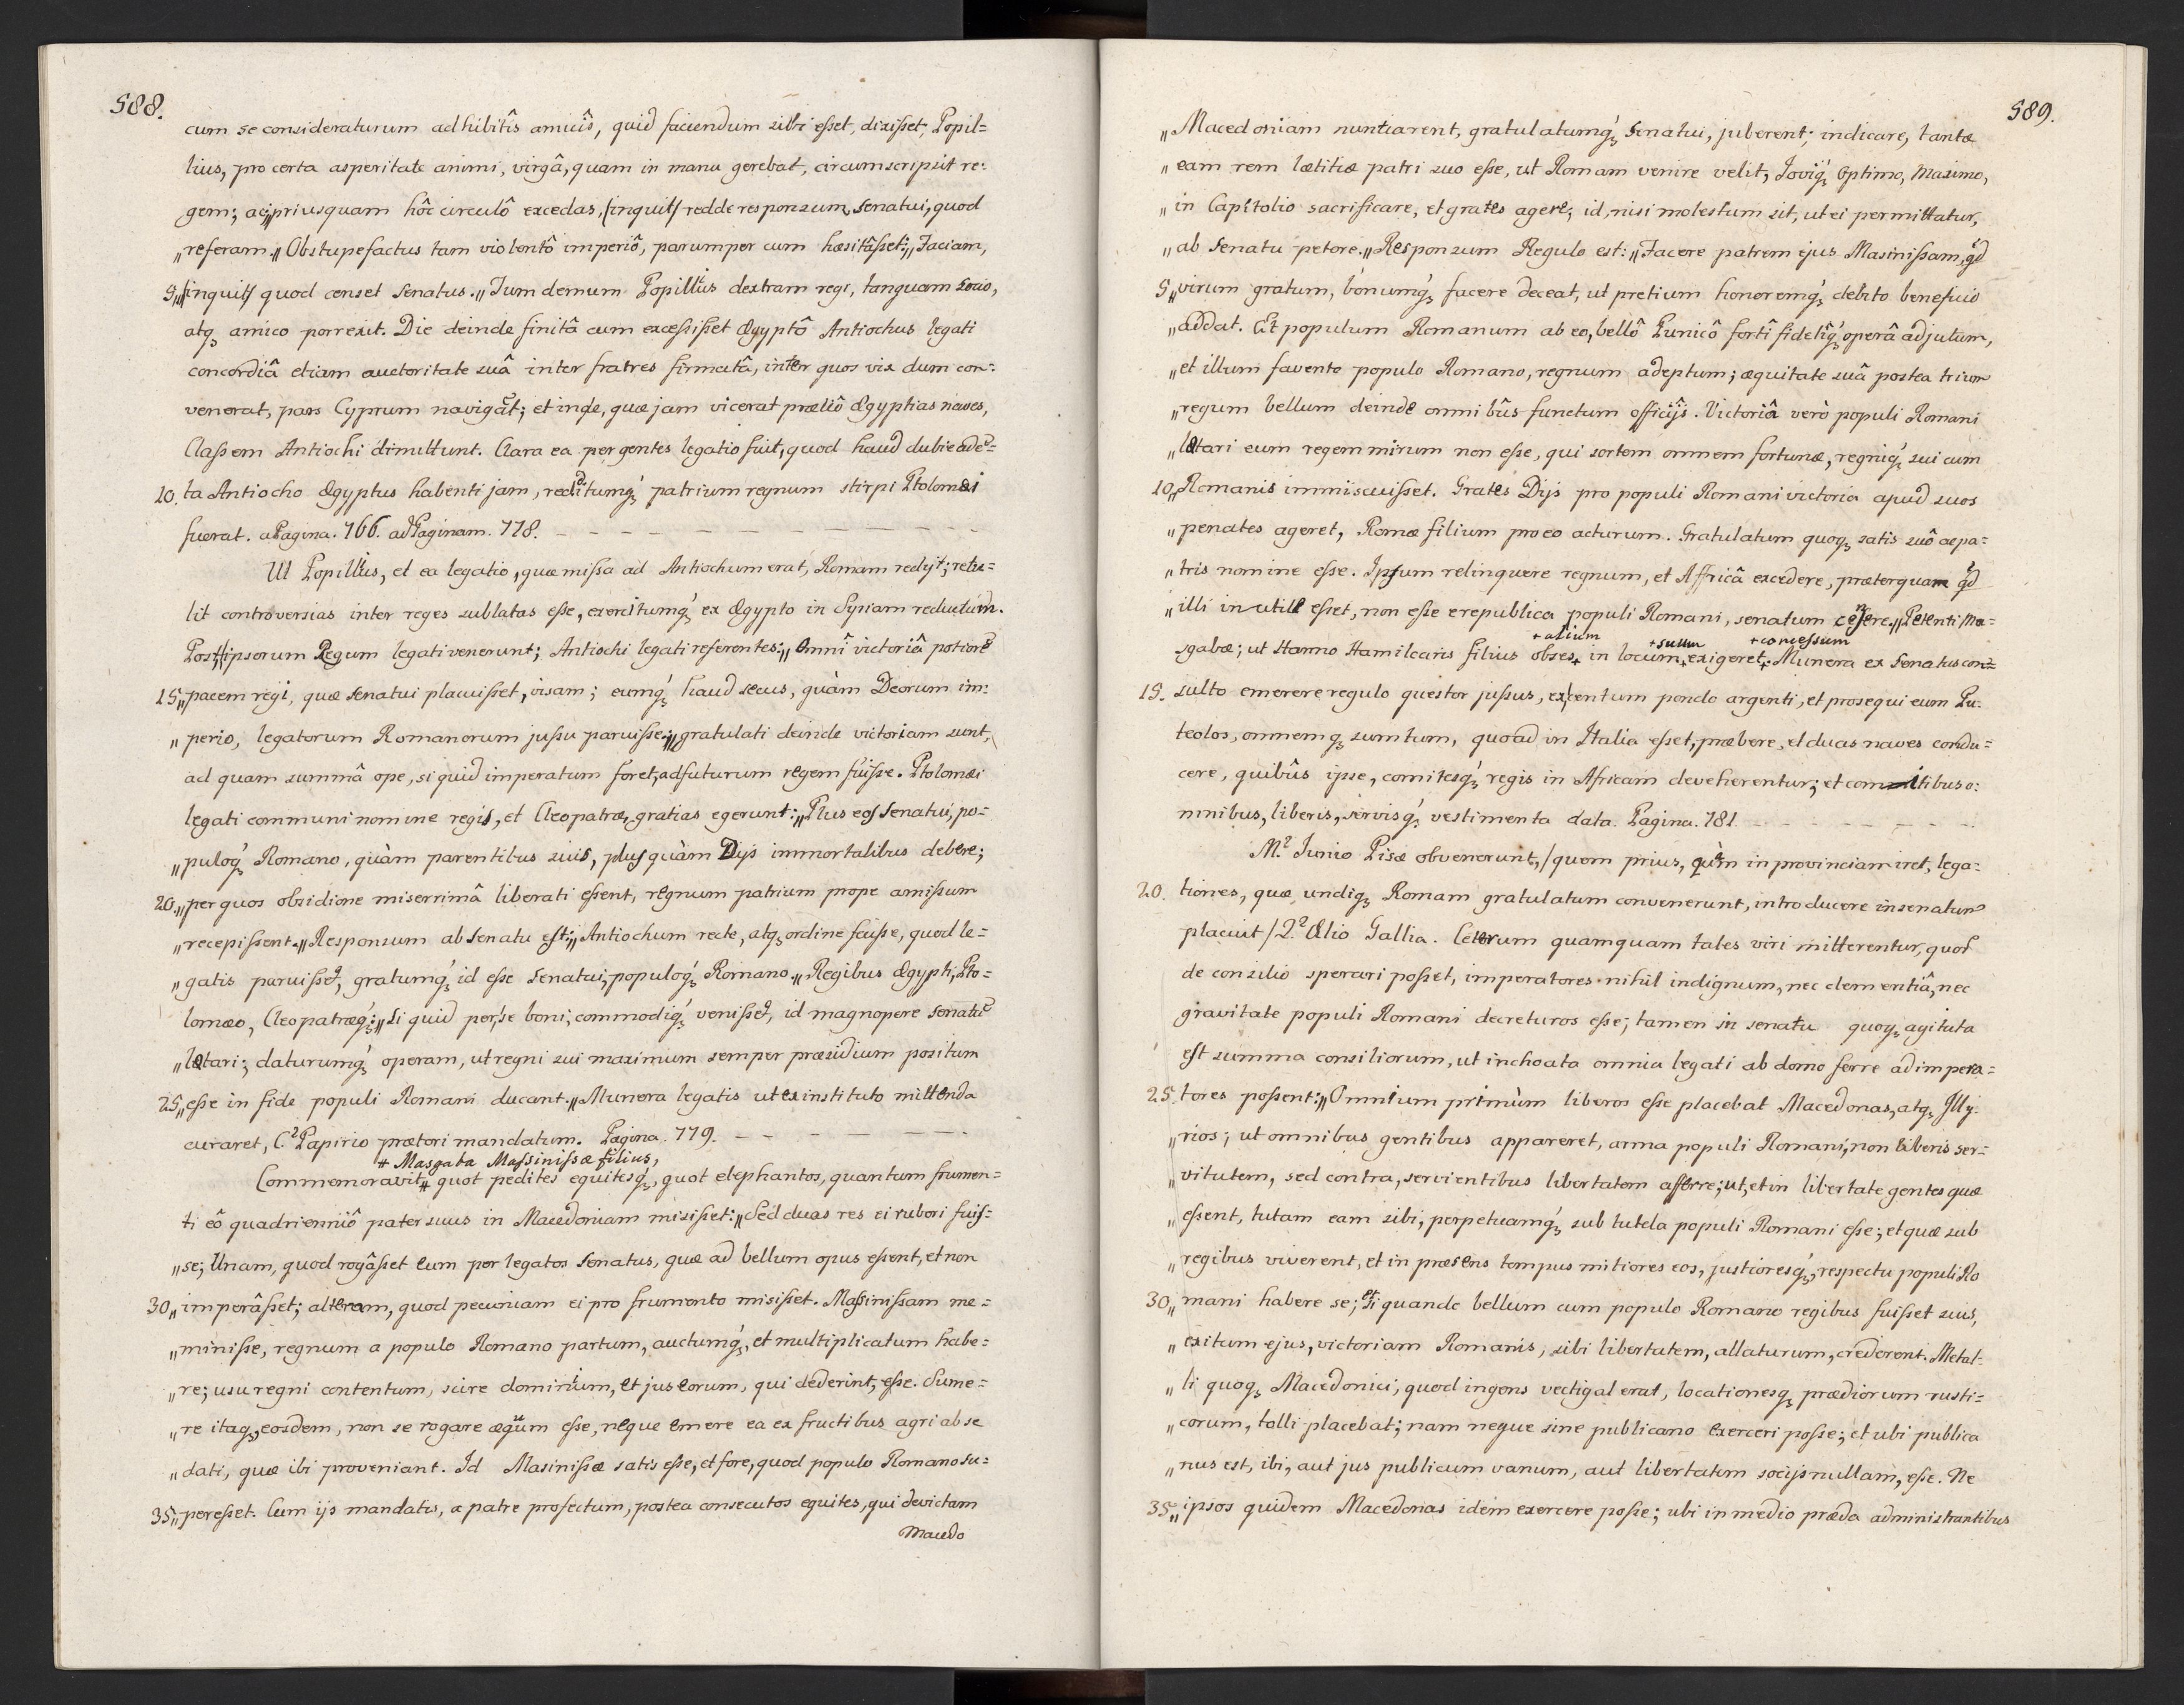 588.
cum se consideraturum adhibitîs amicîs, quid faciendum sibi esset, dixisset, Popil=
lius, pro certa asperitate animi, virgâ, quam in manu gerebat, circumscripsit re=
gem; ac,,priusquam hôc circulô excedas, (inquit) redde responsum, Senatui, quod
,,referam.,, Obstupefactus tam violentô imperiô, parumper cum hæsitâsset:,,Faciam,
5,,(inquit) quod censet Senatus.,,Tum demum Popillius dextram regi, tanquam socio,
atq3 amico porrexit. Die deinde finitâ cum excessisset Ægyptô Antiochus legati
concordiâ etiam auctoritate suâ inter fratres firmatâ, inter quos vix dum con=
venerat, pars Cyprum navigât; et inde, quæ jam vicerat præliô Ægyptias naves,
Classem Antiochi dimittunt. Clara ea per gentes legatio fuit, quod haud dubie ade=
10. ta Antiocho Ægyptus habenti jam, redditumq3 patrium regnum stirpi Ptolomæi
fuerat. a Pagina. 766. ad Paginam. 778. – – – – – – – –
Ut Popillius, et ea legatio, quæ missa ad Antiochum erat, Romam redijt; retu=
lit controversias inter reges sublatas esse, exercitumq3 ex Ægypto in Syriam reductum.
Post, ipsorum Regum legati venerunt; Antiochi legati referentes:,, Omnî victoriâ potiorē
15,,pacem regi, quæ Senatui placuisset, visam; eumq3 haud secus, quàm Deorum im=
,,perio, legatorum Romanorum jussu paruisse;,,gratulati deinde victoriam sunt,
ad quam summâ ope, si quid imperatum foret, adfuturum regem fuisse. Ptolomæi
legati communi nomine regis, et Cleopatræ, gratias egerunt:,,Plus eos Senatui, po=
,,puloq3 Romano, quàm parentibus suis, plus quàm Dijs immortalibus debere;
20,,per quos obsidione miserrimâ liberati essent, regnum patrium prope amissum
,,recepissent.,,Responsum ab Senatu est:,,Antiochum recte, atq3 ordine fecisse, quod le=
,,gatis paruisset, gratumq3 id esse Senatui, populoq3 Romano.,,Regibus Ægypti, Pto=
lomæo, Cleopatræq3:,,Si quid per se boni, commodiq3 venisset, id magnopere Senatū
,,lætari; daturumq3 operam, ut regni sui maximum semper præsidium positum
25,,esse in fide populi Romani ducant.,,Munera legatis ut ex instituto mittenda
curaret, C.? Papirio prætori mandatum. Pagina. 779. – – – – –
+ Masgaba Massinissæ filius,
Commemoravit+ quot pedites equitesq3, quot elephantos, quantum frumen=
ti eô quadrienniô pater suus in Macedoniam misisset:,,Sed duas res ei rubori fuis=
,,se; Unam, quod rogâsset eum per legatos Senatus, quæ ad bellum opus essent, et non
30,,imperâsset; alteram, quod pecuniam ei pro frumento misisset. Massinissam me=
,,minisse, regnum a populo Romano partum, auctumq3, et multiplicatum habe=
,,re; usu regni contentum, scire dominium, et jus eorum, qui dederint, esse. Sume=
,,re itaq3, eosdem, non se rogare æquum esse, neque emere ea ex fructibus agri ab se
,,dati, quæ ibi proveniant. Id Masinissæ satis esse, et fore, quod populo Romano su=
35,,peresset. Cum ijs mandatis, a patre profectum, postea consecutos equites, qui devictam
Macedo
589.
,,Macedoniam nuntiarent, gratulatumq3 Senatui, juberent; indicare, tantæ
,,eam rem lætitiæ patri suo esse, ut Romam venire velit, Joviq3 Optimo, Maximo,
,,in Capitolio sacrificare, et grates agere; id, nisi molestum sit, ut ei permittatur,
,,ab Senatu petere.,,Responsum Regulo est:,,Facere patrem ejus Masinissam, qd
5,,virum gratum, bonumq3 facere deceat, ut pretium honoremq3 debito beneficio
,,addat. Et populum Romanum ab eo, bellô Punicô fortî fidelîq3 operâ adjutum,
,,et illum favente populo Romano, regnum adeptum; æquitate suâ postea trium
,,regum bellum deinde omnibûs functum officijs. Victoriâ verò populi Romani
,,lætari eum regem mirum non esse, qui sortem omnem fortunæ, regniq3 sui cum
10,,Romanis immiscuisset. Grates Dijs pro populi Romani victoria apud suos
,,penates ageret, Romæ filium pro eo acturum. Gratulatum quoq3 satis suô ac pa=
,,tris nomine esse. Ipsum relinquere regnum, et Affricâ excedere, præterquam qd
,,illi inutile esset, non esse e republica populi Romani, senatum censere.,,Petenti Ma=
+ alium + suum + concessum
sgabæ; ut Hanno Hamilcaris filius obses+ in locum+ exigeret+ Munera ex Senatus con=
15. sulto emerere regulo questor jussus, ex centum pondo argenti, et prosequi eum Pu=
teolos, omnemq3 sumtum, quoad in Italia esset, præbere, et duas naves condu=
cere, quibûs ipse, comitesq3 regis in Africam deveherentur; et comitibus o=
mnibus, liberis, servisq3 vestimenta data. Pagina. 781. – – – – – –
M.? Junio Pisæ obvenerunt, /quem prius, quàm in provinciam iret, lega=
20. tiones, quæ undiq3 Romam gratulatum convenerunt, introducere in senatum
placuit / Q.? Ælio Gallia. Ceterum quamquam tales viri mitterentur, quor
de consilio sperari posset, imperatores nihil indignum, nec clementiâ, nec
gravitate populi Romani decreturos esse; tamen in senatu quoq3 agitata
est summa consiliorum, ut inchoata omnia legati ab domo ferre ad impera=
25. tores possent:,,Omnium primùm liberos esse placebat Macedonas, atq3 Illy=
,,rios; ut omnibus gentibus appareret, arma populi Romani, non liberis ser=
,,vitutem, sed contra, servientibus libertatem afferre; ut, et in libertate gentes quæ
,,essent, tutam eam sibi, perpetuamq3 sub tutela populi Romani esse; et quæ sub
,,regibus viverent, et in præsens tempus mitiores eos, justioresq3, respectu populi Ro
30,,mani habere se; et si quando bellum cum populo Romano regibus fuisset suis,
,,exitum ejus, victoriam Romanis, sibi libertatem, allaturum, crederent. Metal=
,,li quoq3 Macedonici, quod ingens vectigal erat, locationesq3 prædiorum rusti=
,,corum, tolli placebat; nam neque sine publicano exerceri posse; et ubi publica
,,nus est, ibi, aut jus publicum vanum, aut libertatem socijs nullam, esse. Ne
35,,ipsos quidem Macedonas idem exercere posse; ubi in medio præda administrantibus